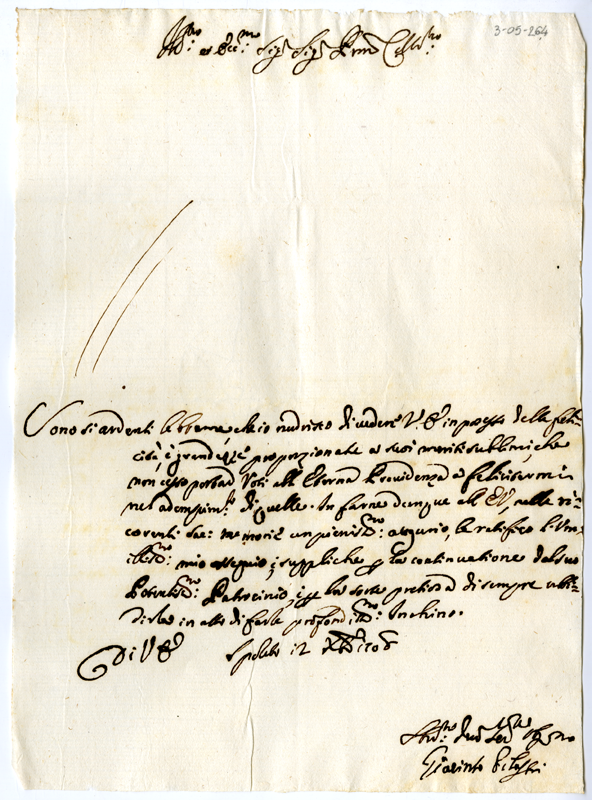 3-05-264
Ill.mo et Ecc.mo Sig.r Sig.r Pron Col.mo
Sono sì ardenti le brame, che io nudrisco di vedere V. E. in possesso della feli-
cità, e grandezze proporzionate a suoi meriti sublimi, che
non cesso portar Voti all'Eterna Providenza à felicitarmi
nel adempim.to di quelle. In farne dunque all'E.V., nelle ri-
correnti
un pieniss.mo augurio, le ratifico l'um-
iliss.mo mio ossequio, e supplico p la continuatione del suo
Patrocinio, e p la sorte pretiosa di sempre ubbi-
dirla in atto di farle profondiss.mo Inchino.
Di V. E.
Spoleto 12 Xbre 1708
Giacinto